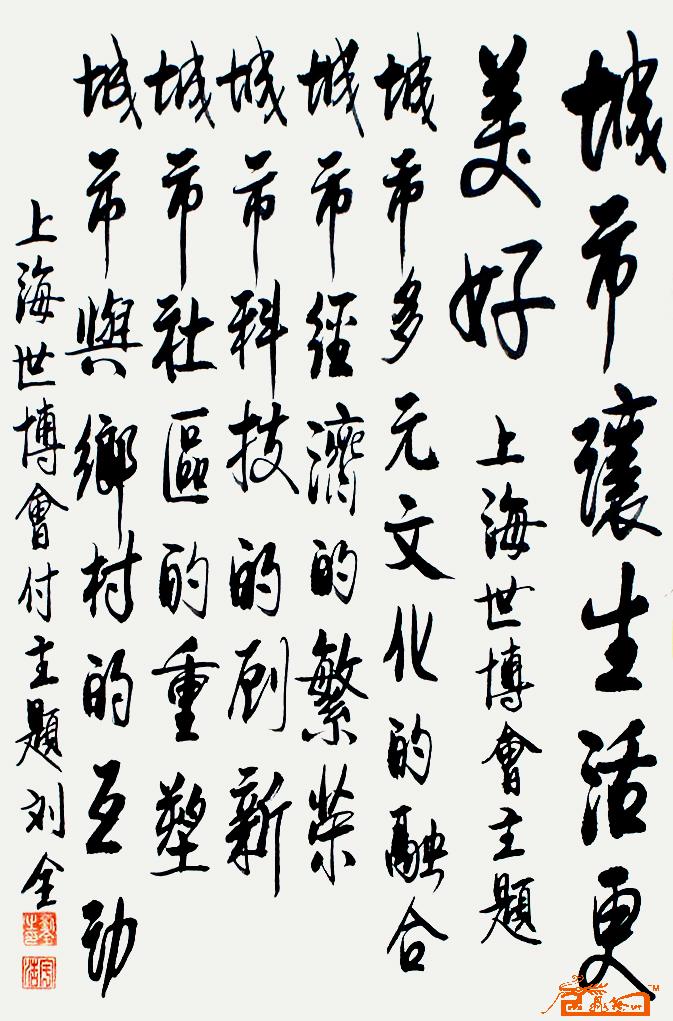 城市讓生活更
美好 上海世博會主題
城市多元文化的融合
城市經濟的繁榮
城市科技的創新
城市社區的重塑
城市與鄉村的互動
上海世博會付主題刘全